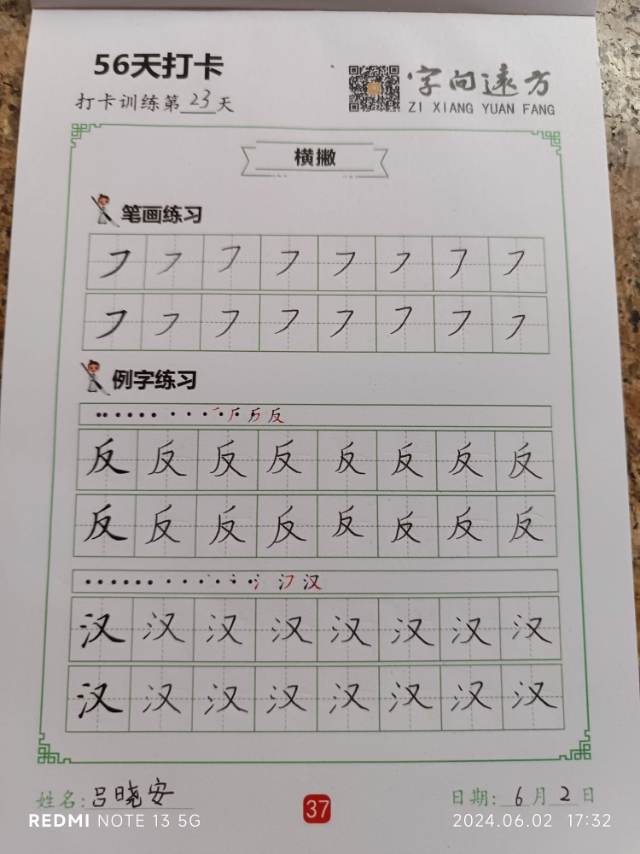 56天打卡
字向远方
打卡训练第23天
ZI XIANG YUAN FANG
横撇
笔画练习
㇇ ㇇ ㇇ ㇇ ㇇ ㇇ ㇇ ㇇
㇇ ㇇ ㇇ ㇇ ㇇ ㇇ ㇇ ㇇
例字练习
反
反 反 反 反 反 反 反 反
反 反 反 反 反 反 反 反
汉
汉 汉 汉 汉 汉 汉 汉 汉
汉 汉 汉 汉 汉 汉 汉 汉
姓名:吕晓安
37
日期: 6月2日
REDMI NOTE 13 5G
2024.06.02 17:32